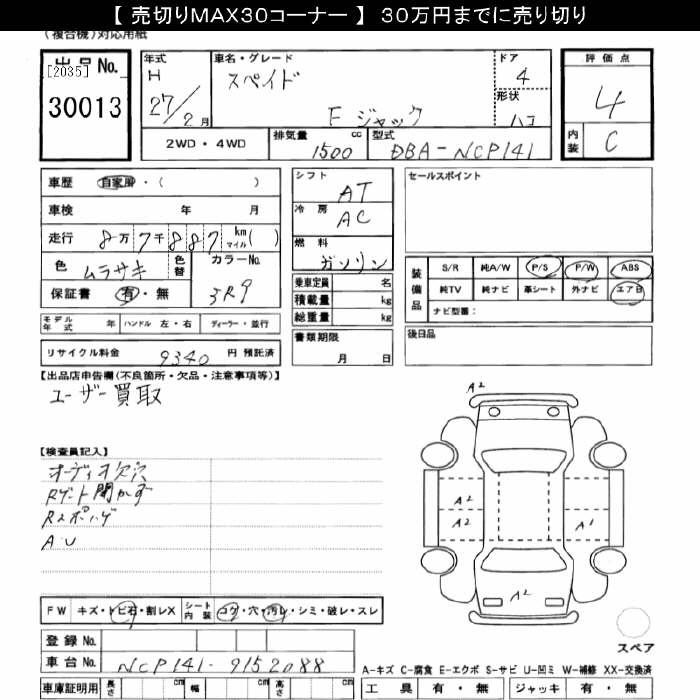 【 売切りMAX30コーナー 】 30万円までに売り切り
(複合機)対応用紙
出品No.
[2035]
30013
年式
H
27/2月
車名・グレード
スペイド
F ジャック
ドア
4
形状
ハコ
評価点
4
内装
C
2WD・4WD
排気量
1500 cc
型式
DBA-NCP141
車歴 自家用・( )
車検 年 月
走行 8万7千887 km マイル( )
色 ムラサキ 色替
カラーNo.
3R9
保証書 有・無
モデル年式 年 ハンドル 左・右 ディーラー・並行
リサイクル料金 9340 円 預託済
シフト AT
冷房 AC
燃料 ガソリン
乗車定員 名
積載量 kg
総重量 kg
書類期限
月 日
セールスポイント
装備品
S/R 純A/W P/S P/W ABS
純TV 純ナビ 革シート 外ナビ エアB
ナビ型番:
後日品
【出品店申告欄(不良箇所・欠品・注意事項等)】
ユーザー買取
【検査員記入】
オーディオ欠穴
Rゲート開かず
Rスポハゲ
A・U
A2
A2
A2
A1
A2
スペア
FW キズ・トビ石・割レX シート内装 コゲ・穴・汚レ・シミ・破レ・スレ
登録No.
車台No. NCP141-9152088
車庫証明用 長さ cm 幅 cm 高さ cm
A-キズ C-腐食 E-エクボ S-サビ U-凹ミ W-補修 XX-交換済
工具 有・無 ジャッキ 有・無